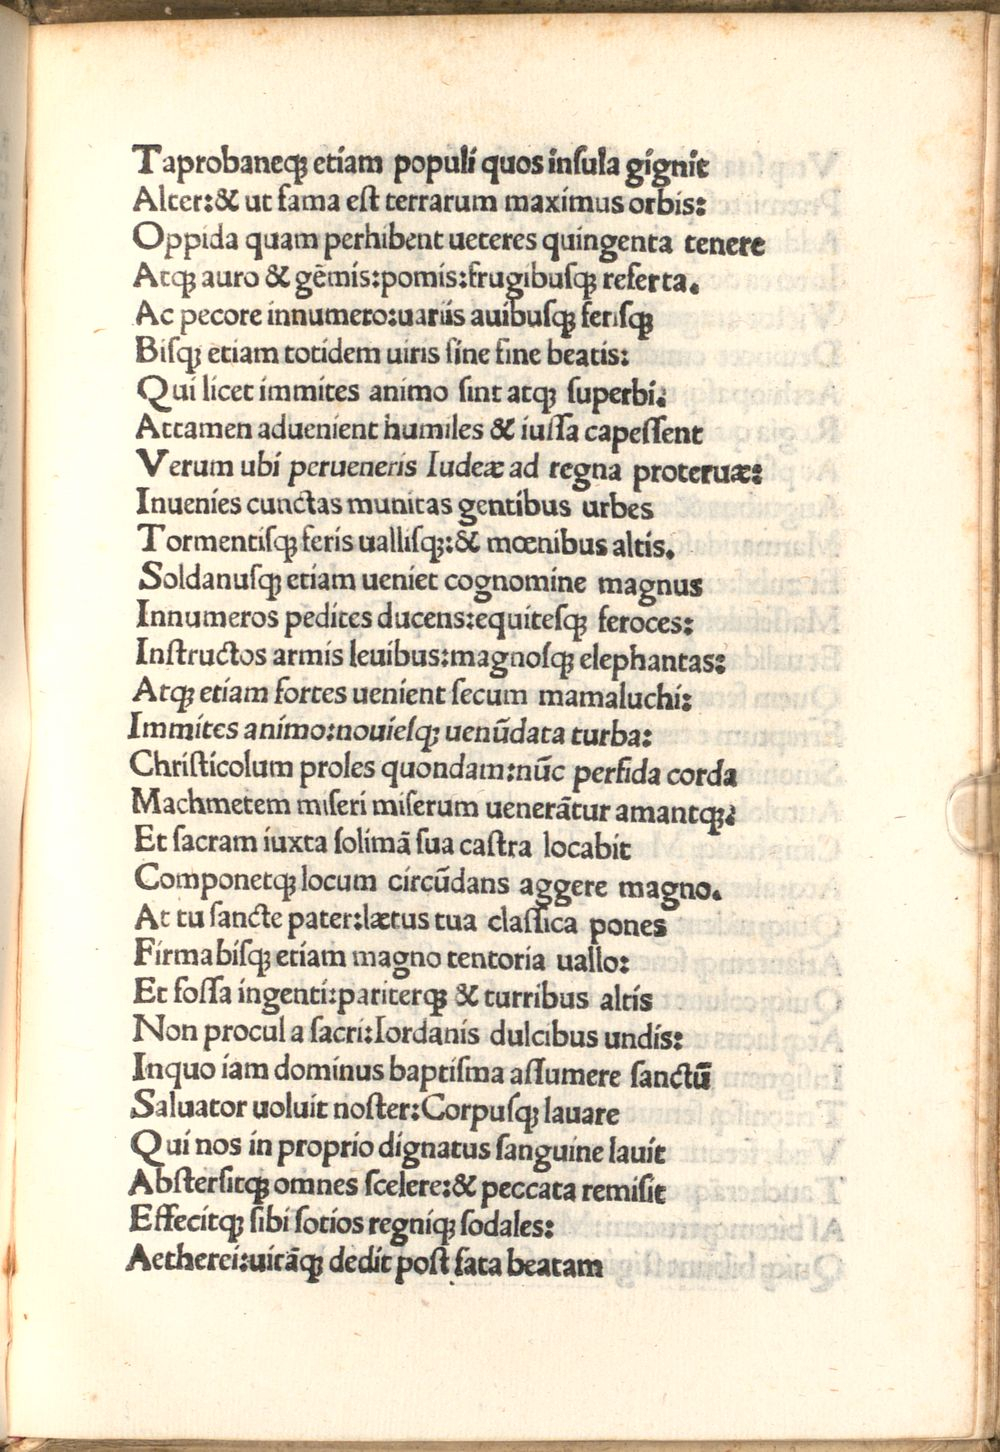 Taprobaneqꝫ etiam populi quos inſula gignit
Alter:& ut fama eſt terrarum maximus orbis:
Oppida quam perhibent ueteres quingenta tenere
Atqꝫ auro & gēmis:pomis:frugibuſqꝫ referta.
Ac pecore innumero:uariis auibuſqꝫ feriſqꝫ
Biſqꝫ etiam totidem uiris ſine fine beatis:
Qui licet immites animo ſint atqꝫ ſuperbi.
Attamen aduenient humiles & iuſſa capeſſent
Verum ubi perueneris Iudeæ ad regna proteruæ:
Inuenies cunctas munitas gentibus urbes
Tormentiſqꝫ feris ualliſqꝫ:& mœnibus altis.
Soldanuſqꝫ etiam ueniet cognomine magnus
Innumeros pedites ducens:equiteſqꝫ feroces:
Inſtructos armis leuibus:magnoſqꝫ elephantas:
Atqꝫ etiam fortes uenient ſecum mamaluchi:
Immites animo:nouieſqꝫ uenūdata turba:
Chriſticolum proles quondam:nūc perfida corda
Machmetem miſeri miſerum uenerātur amantqꝫ:
Et ſacram iuxta ſolimā ſua caſtra locabit
Componetqꝫ locum circūdans aggere magno.
At tu ſancte pater:lætus tua claſſica pones
Firmabiſqꝫ etiam magno tentoria uallo:
Et foſſa ingenti:pariterqꝫ & turribus altis
Non procul a ſacri:Iordanis dulcibus undis:
Inquo iam dominus baptiſma aſſumere ſanctū
Saluator uoluit noſter:Corpuſqꝫ lauare
Qui nos in proprio dignatus ſanguine lauit
Abſterſitqꝫ omnes ſcelere:& peccata remiſit
Effecitqꝫ ſibi ſotios regniqꝫ ſodales:
Aetherei:uitāqꝫ dedit poſt fata beatam